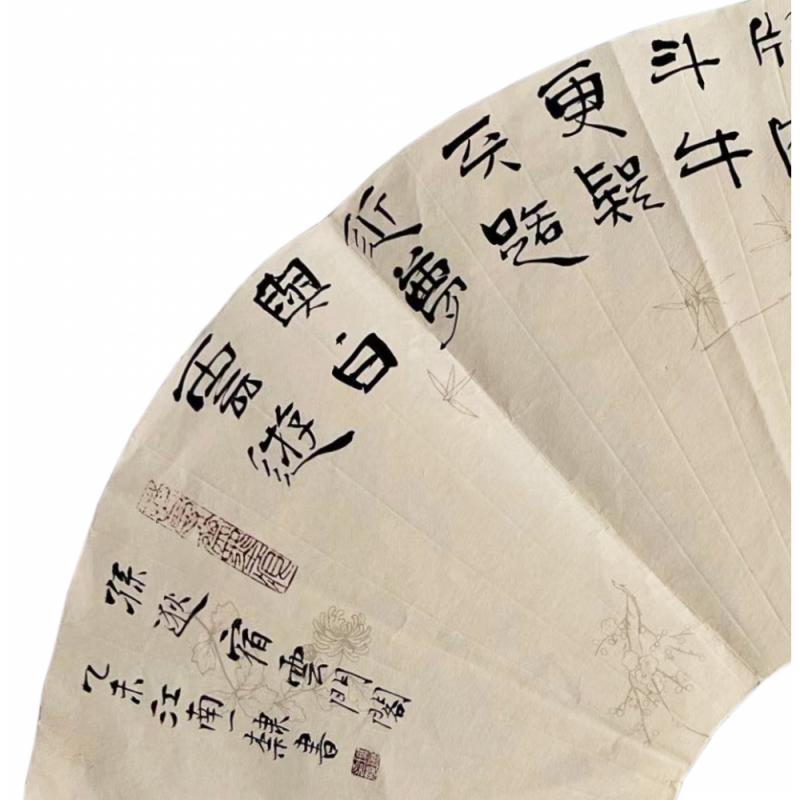 斗牛
更疑
天路
近夢
與白
雲遊
孫逖宿雲門閣
乙未江南一棣書